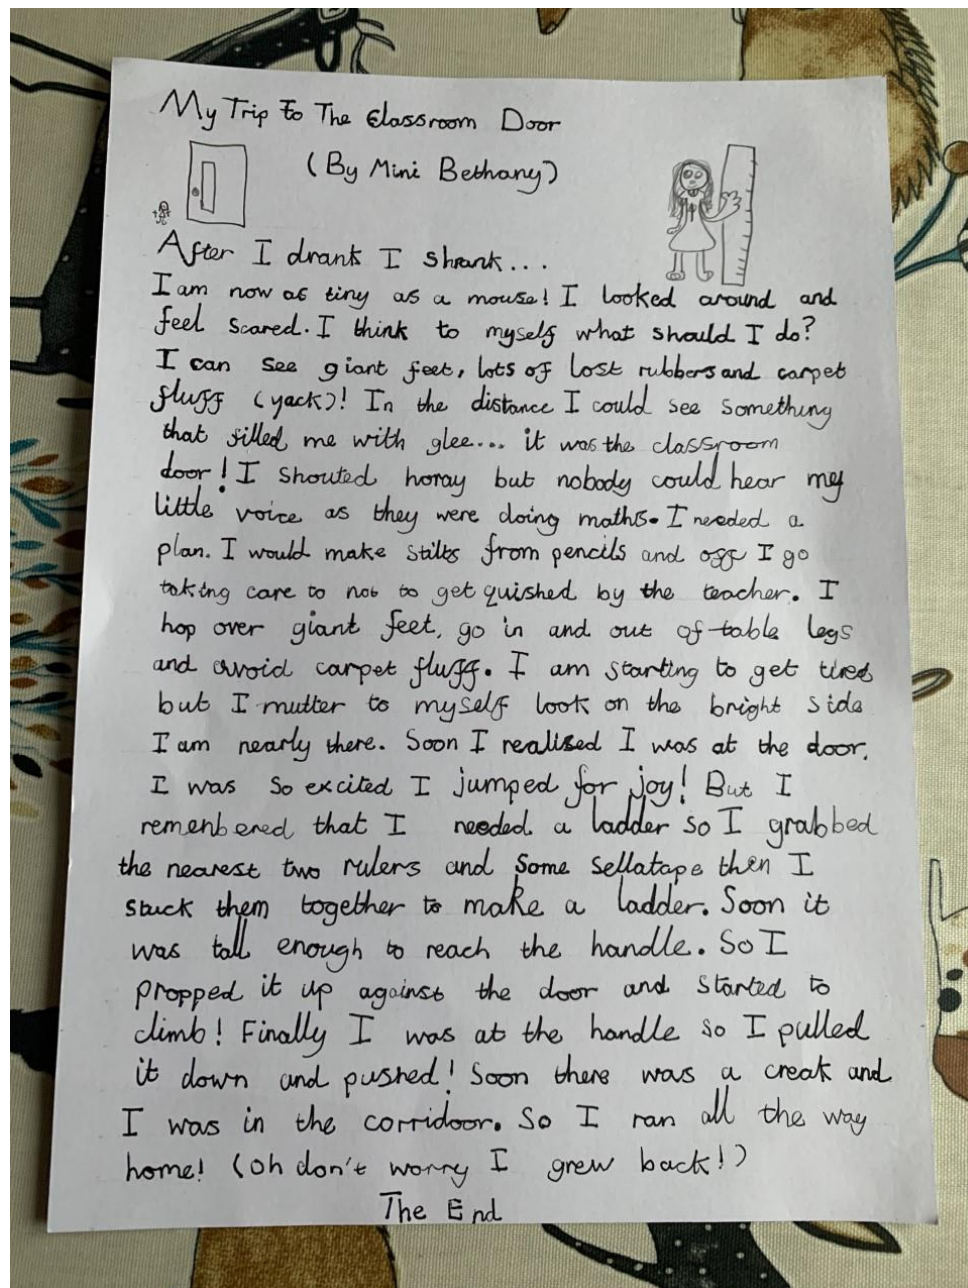 My Trip To The Classroom Door
(By Mini Bethany)
After I drank I shrank...
I am now as tiny as a mouse! I looked around and
feel scared. I think to myself what should I do?
I can see giant feet, lots of lost rubbers and carpet
fluff (yack)! In the distance I could see something
that filled me with glee... it was the classroom
door! I shouted horay but nobody could hear my
little voice as they were doing maths. I needed a
plan. I would make stilts from pencils and off I go
taking care to not to get quished by the teacher. I
hop over giant feet, go in and out of table legs
and avoid carpet fluff. I am starting to get tired
but I mutter to myself look on the bright side
I am nearly there. Soon I realised I was at the door.
I was so excited I jumped for joy! But I
remenbered that I needed a ladder so I grabbed
the nearest two rulers and some sellatape then I
stuck them together to make a ladder. Soon it
was tall enough to reach the handle. So I
propped it up against the door and started to
climb! Finally I was at the handle so I pulled
it down and pushed! Soon there was a creak and
I was in the corridoor. So I ran all the way
home! (oh don't worry I grew back!)
The End